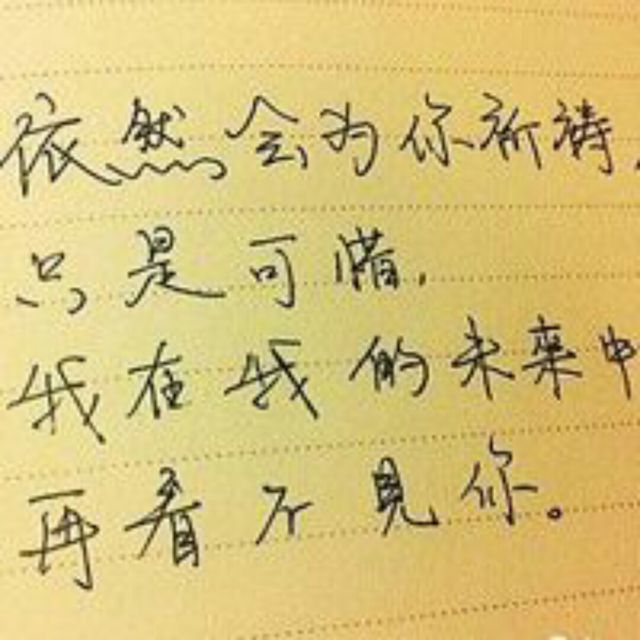 依然会为你祈祷,
只是可惜.
我在我的未来中
再看不见你。